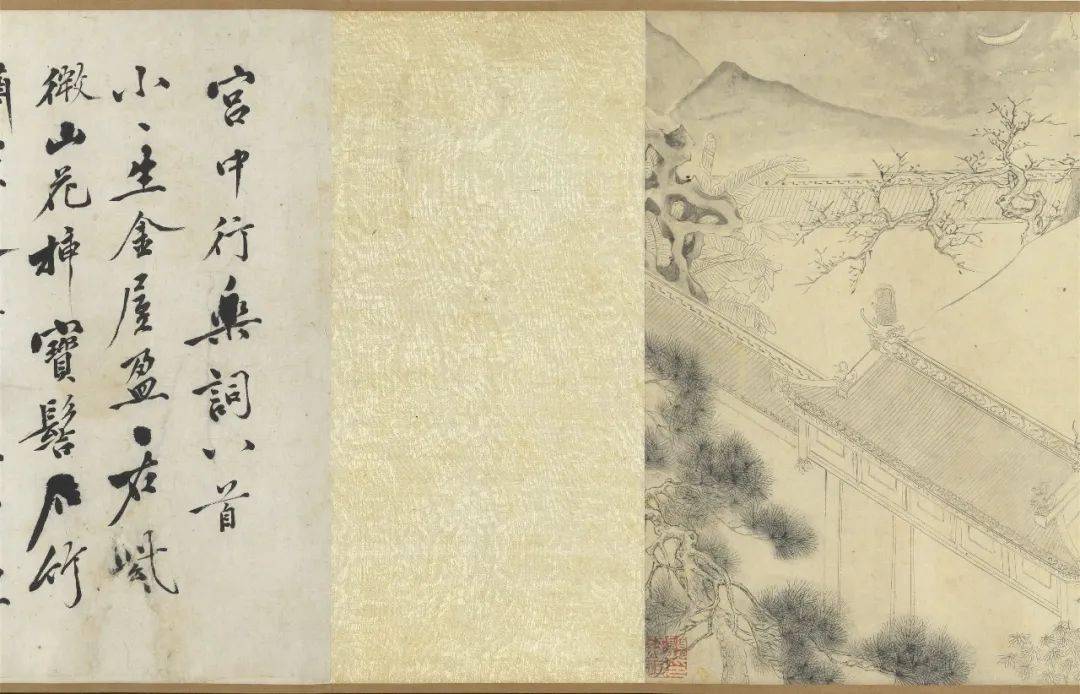 宮中行樂詞八首
小〻生金屋盈〻在紫
微山花插寶髻石竹